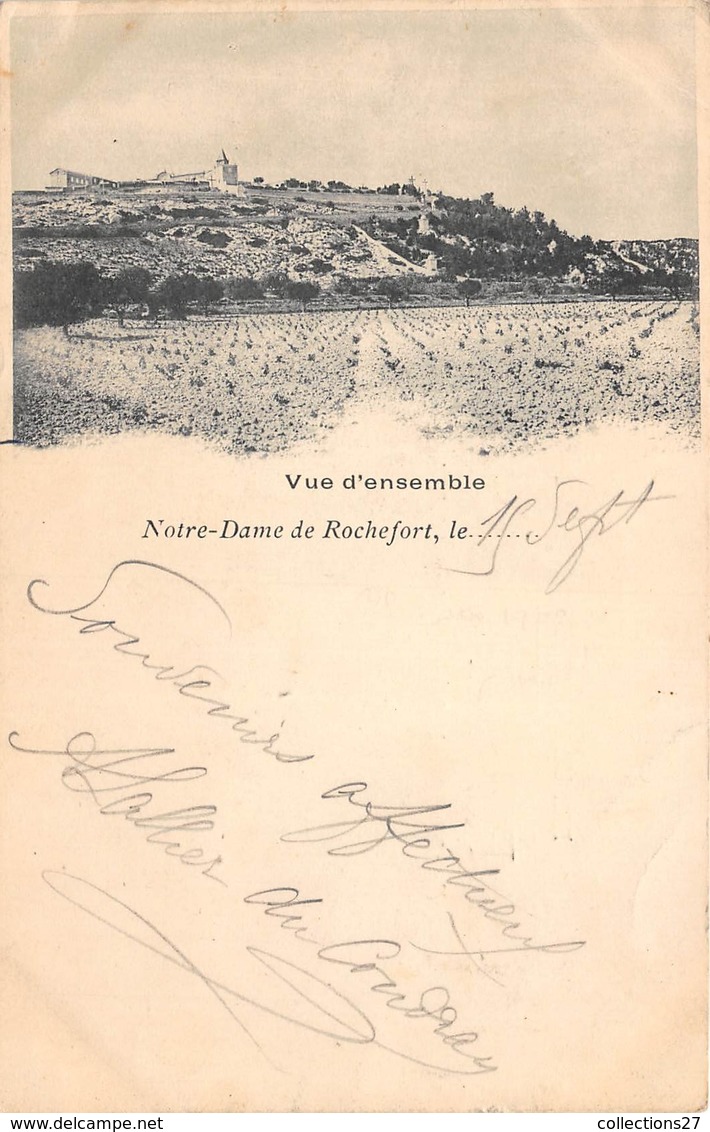 Vue d'ensemble
Notre-Dame de Rochefort, le........ 15 Sept
Souvenirs affectueux
Hallier du Coudray
delcampe.net
collections27